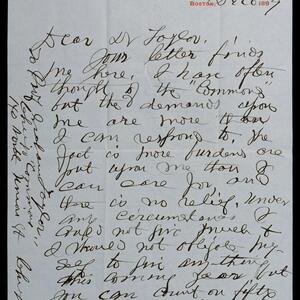 BOSTON, Dec 6 189
Dear Dr Taylor,
Your letter finds
me here. I have often
thought of the "Commons"
but the demands upon
me are more than
I can respond to, the
fact is more burdens are
put upon me than I
can care for, and
there is no relief, under
any circumstances I
could not give much &
I should not oblige my
self to give anything
this coming year but
you can count on fifty
To Prof. Graham Taylor,
Chicago Commons
140 North Union St